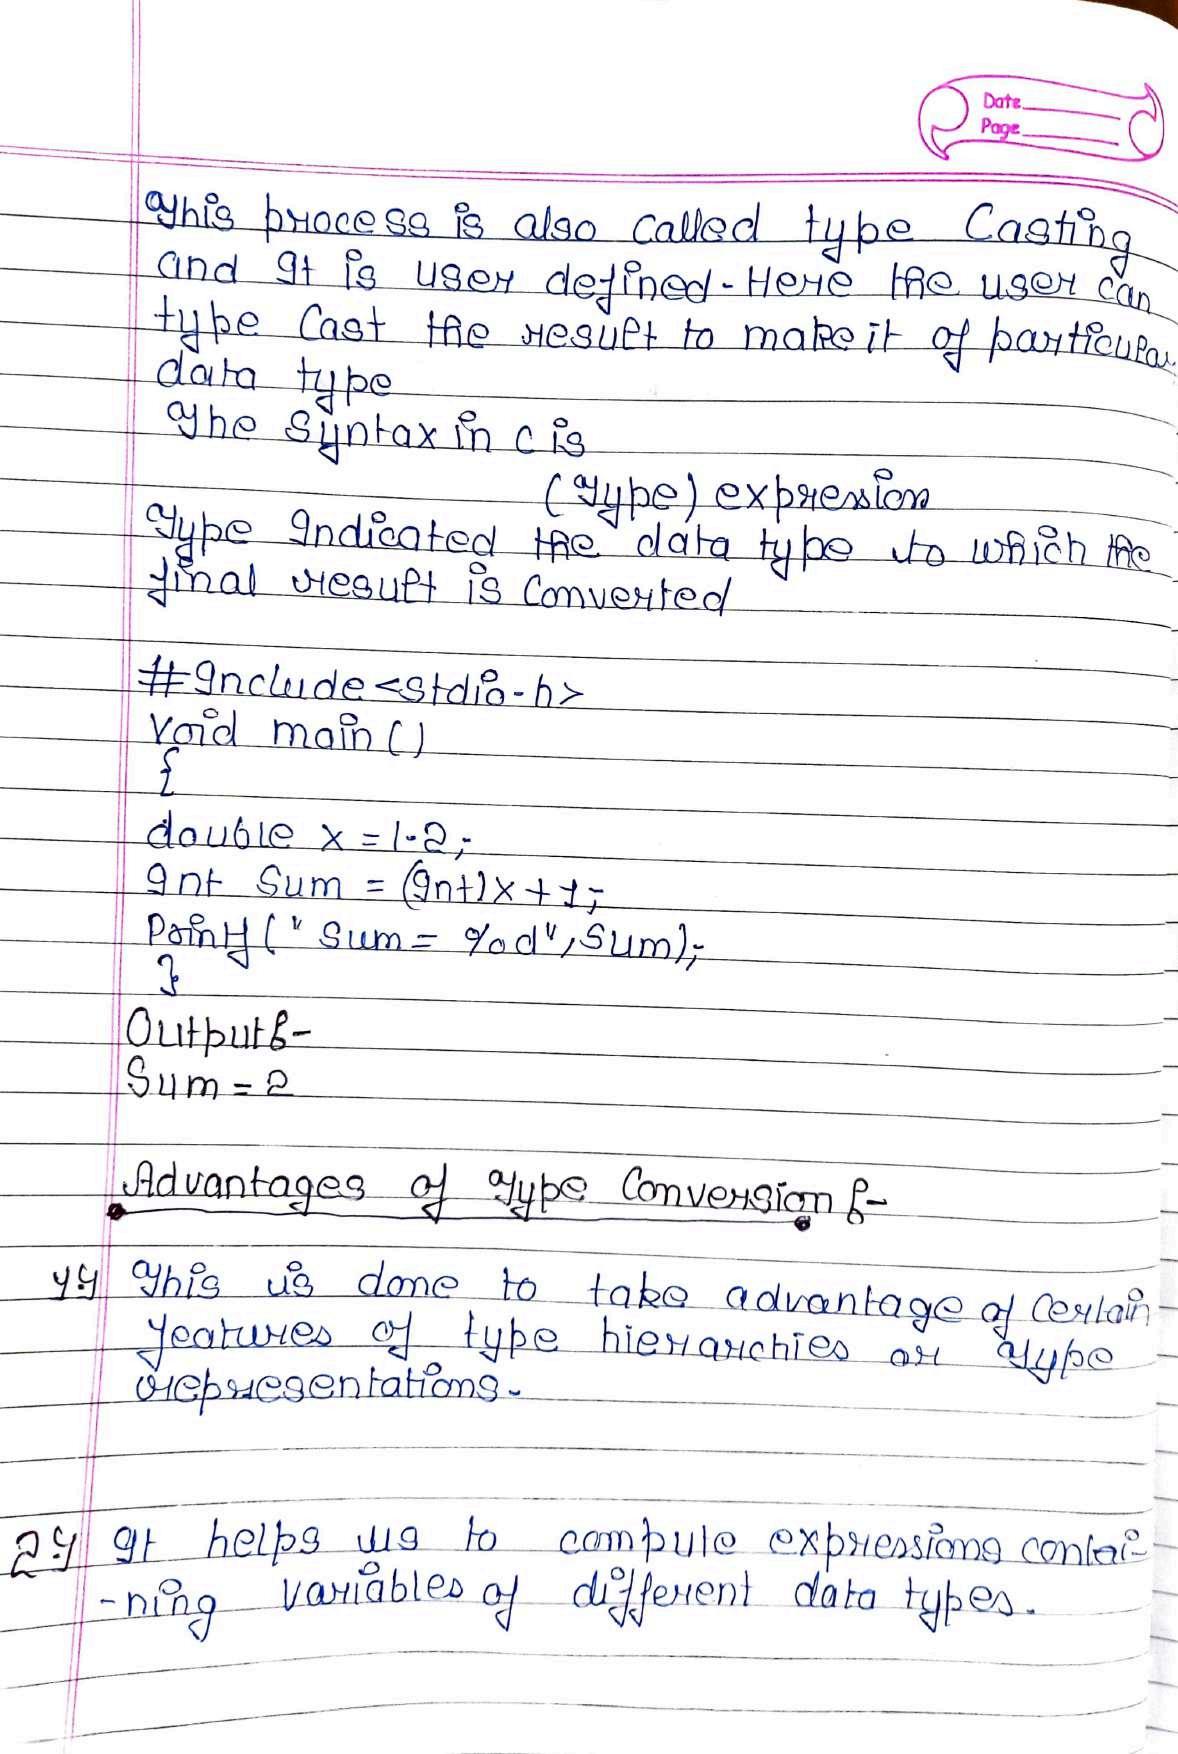 Date
Page
This process is also called type Casting
and It is user defined. Here the user can
type Cast the result to make it of particular
data type
The Syntax in C is
(Type) expression
Type Indicated the data type to which the
final result is Converted
#Include<stdio.h>
Void main()
{
double x = 1.2;
Int Sum = (Int)x + 1;
Printf("Sum = %d", Sum);
}
Output:-
Sum = 2
Advantages of Type Conversion :-
1) This is done to take advantage of Certain
features of type hierarchies or Type
representations.
2) It helps us to compute expressions contai-
-ning variables of different data types.